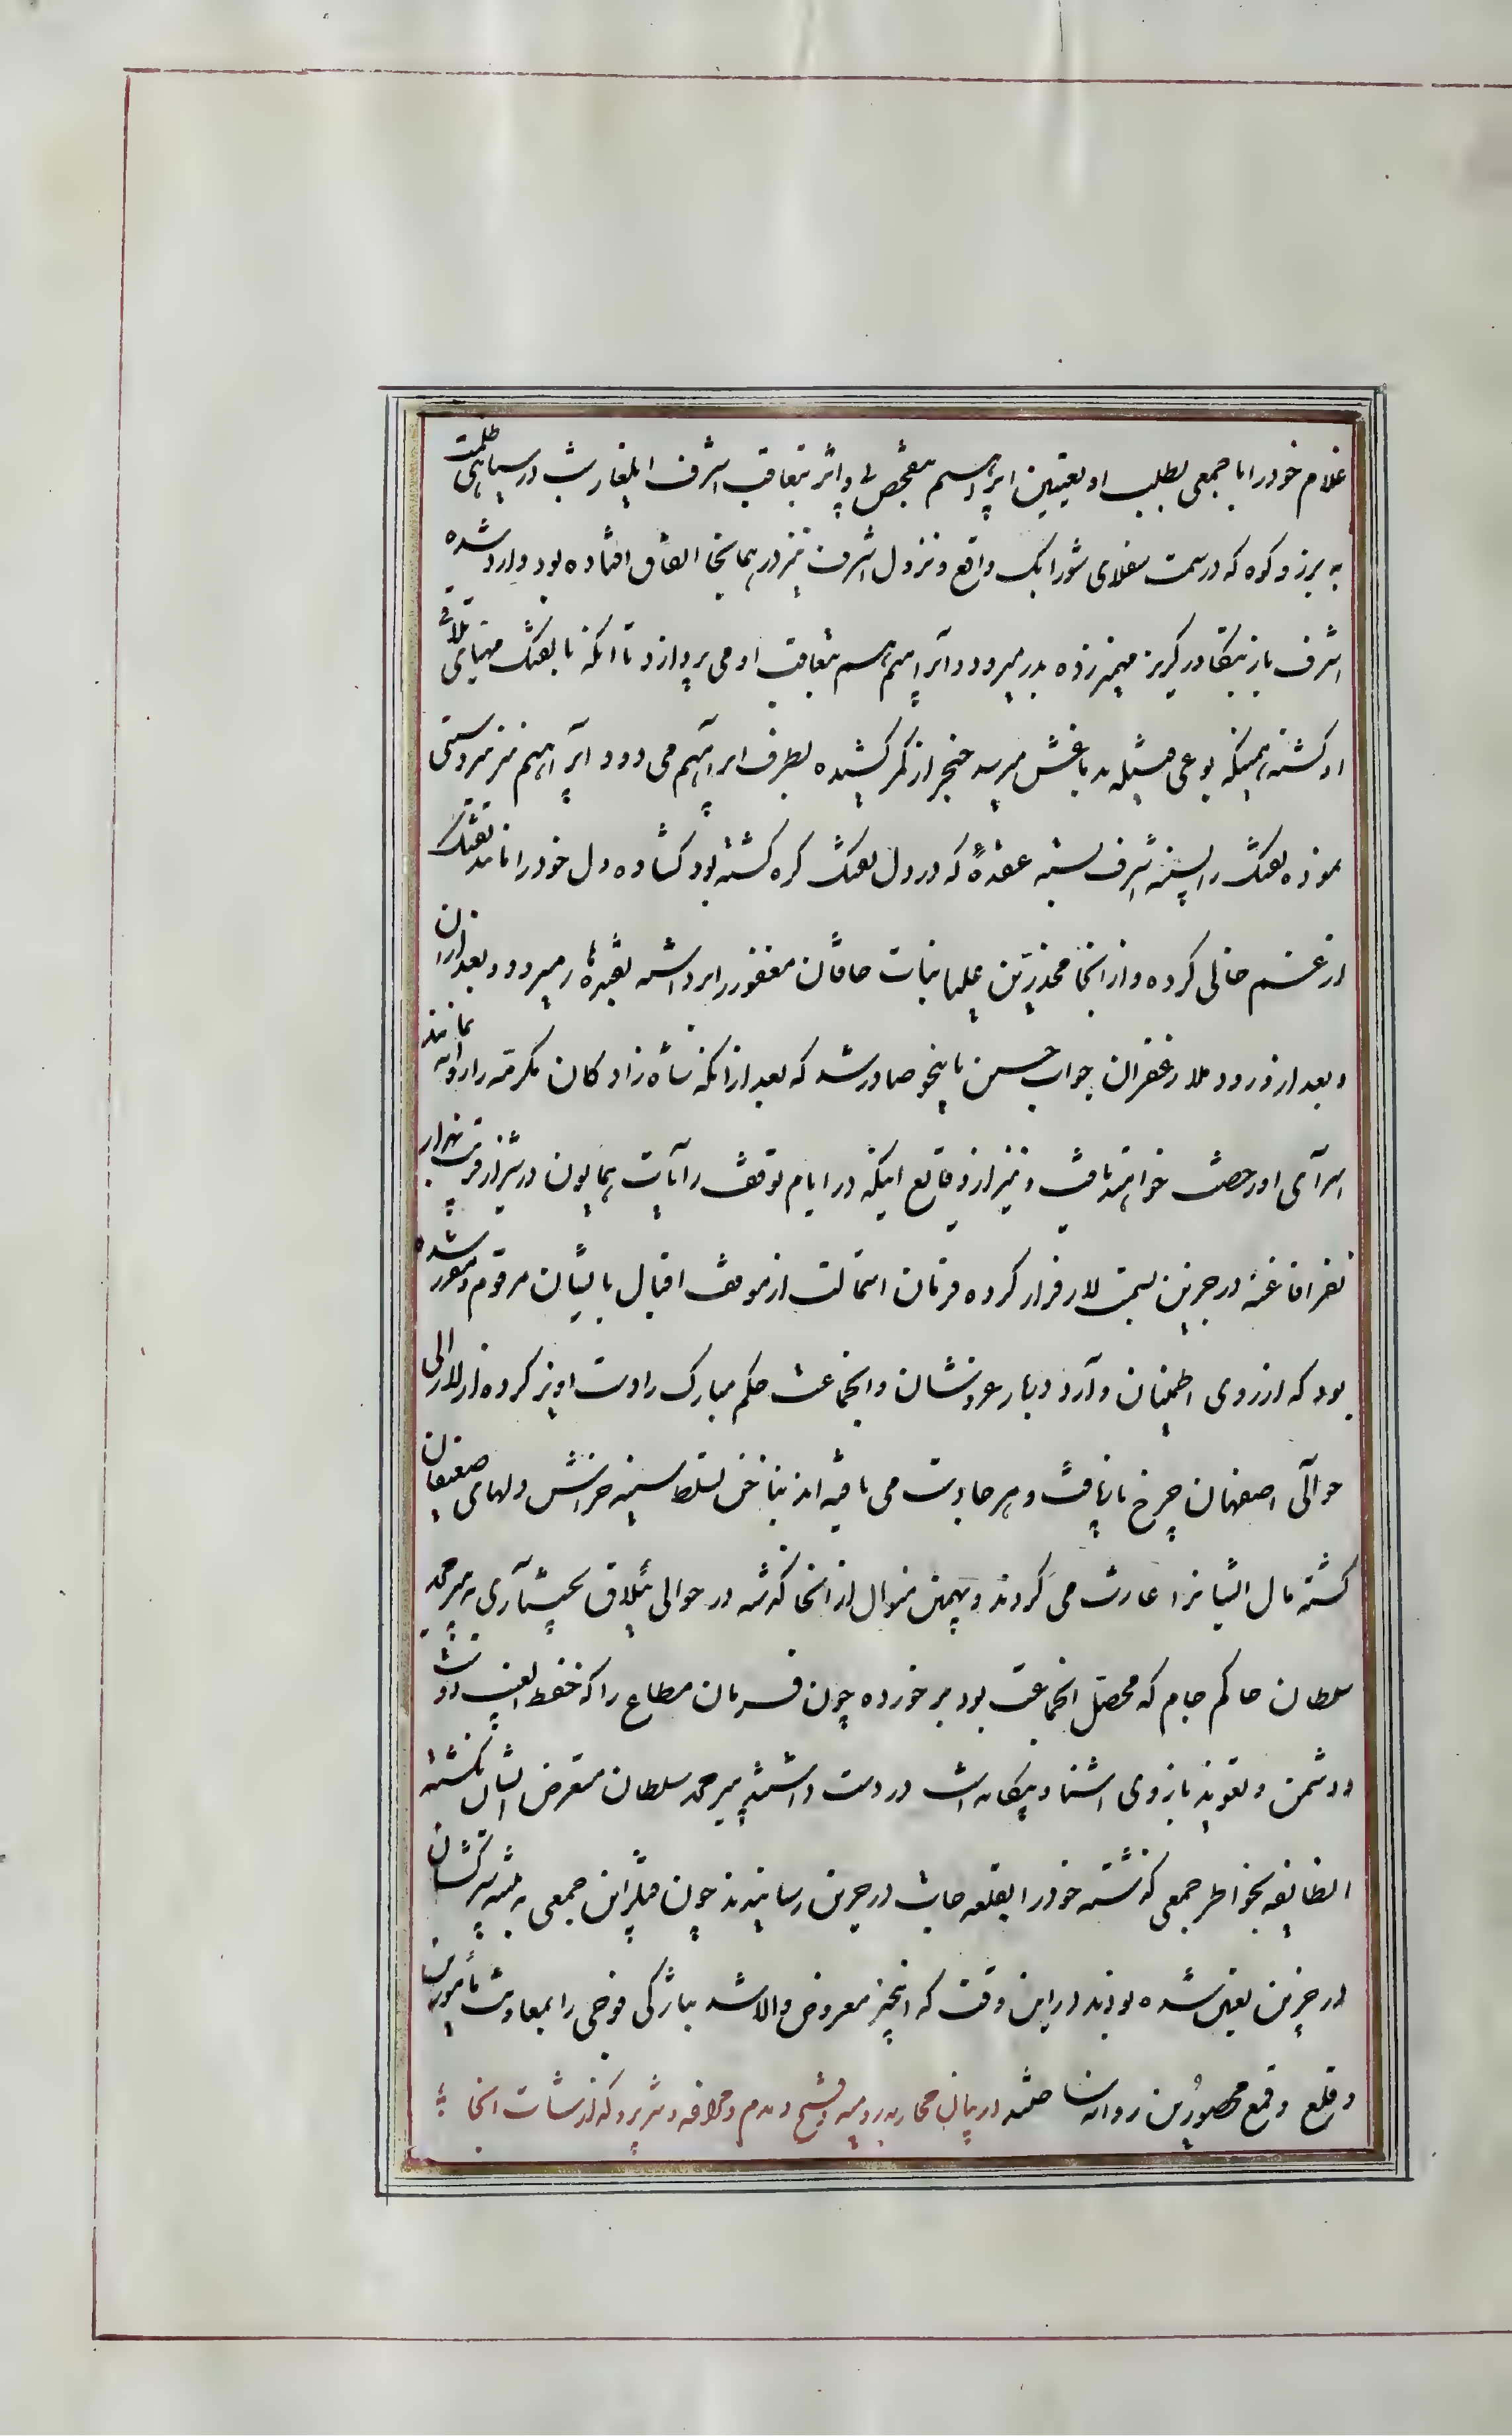 غلام خود را با جمعی بطلب او تعیین ابراهیم بتفحص پی و اثر بتعاقب اشرف ایلغار در سیاهی ظلمت
به برز و کوه که در سمت سفلای شورابک واقع و نزول اشرف نیز در همانجا اتفاق افتاده بود وارد شده
اشرف باز بتکاور گریز مهمیز زده بدر میرود و ابراهیم هم بتعاقب او می پردازد تا آنکه با تفنگ مهیای تلاش
او گشته همینکه بوعی میشیله بدماغش میرسد خنجر از کمر کشیده بطرف ابراهیم می دود ابراهیم نیز سردستی
نموده تفنگ را بسینه اشرف بسته عقدهٔ که در دل تفنگ گره گشته بود گشاده دل خود را مانند تفنگ
از غم خالی کرده و از آنجا مخدرتین علیا بنات خاقان مغفور را برداشته بقندهار میرود و بعد از آن
و بعد از ورود ملا زعفران جواب حسین باینجو صادر شد که بعد از آنکه شاه زادگان مکرمه را روانه نمایند
اسرای او رخصت خواهند یافت و نیز از وقایع اینکه در ایام توقف رایات همایون در شیراز قرب هزار
نفر افاغنه درجزین بسمت لار فرار کرده فرمان استمالت از موقف اقبال بایشان مرقوم و مقرر شده
بود که از روی اطمینان وارد دربار عرونشان و آنجماعت حکم مبارک را دست آویز کرده از لار الی
حوالی اصفهان چرخ تا یافت و هر جا دست می یافته اند بناخن تسلط سینه خراش دلهای ضعیفان
گشته مال ایشانرا غارت می کردند و بهمین منوال از آنجا گذشته در حوالی ییلاق بختیاری به میر محمد
سلطان حاکم جام که محصل آنجماعت بود بر خورده چون فرمان مطاع را که خط الغیب دوست
و دشمن و تعویذ بازوی آشنا و بیگانه است در دست داشتند میر محمد سلطان متعرض ایشان نگشته
آنطایفه بخواطر جمعی گذشته خود را بقلعه جات درجزین رسانیدند چون قبل از این جمعی به تنبیه سرکشان
درجزین تعیین شده بودند در این وقت که این خبر معروض والا شد بتازگی فوجی را بمعاونت مامورین
و قلع و قمع محصورین روانه ساختند در بیان محاربه رومیه و فتح و هدم و مراغه و تبریز و گذارشات آنجا